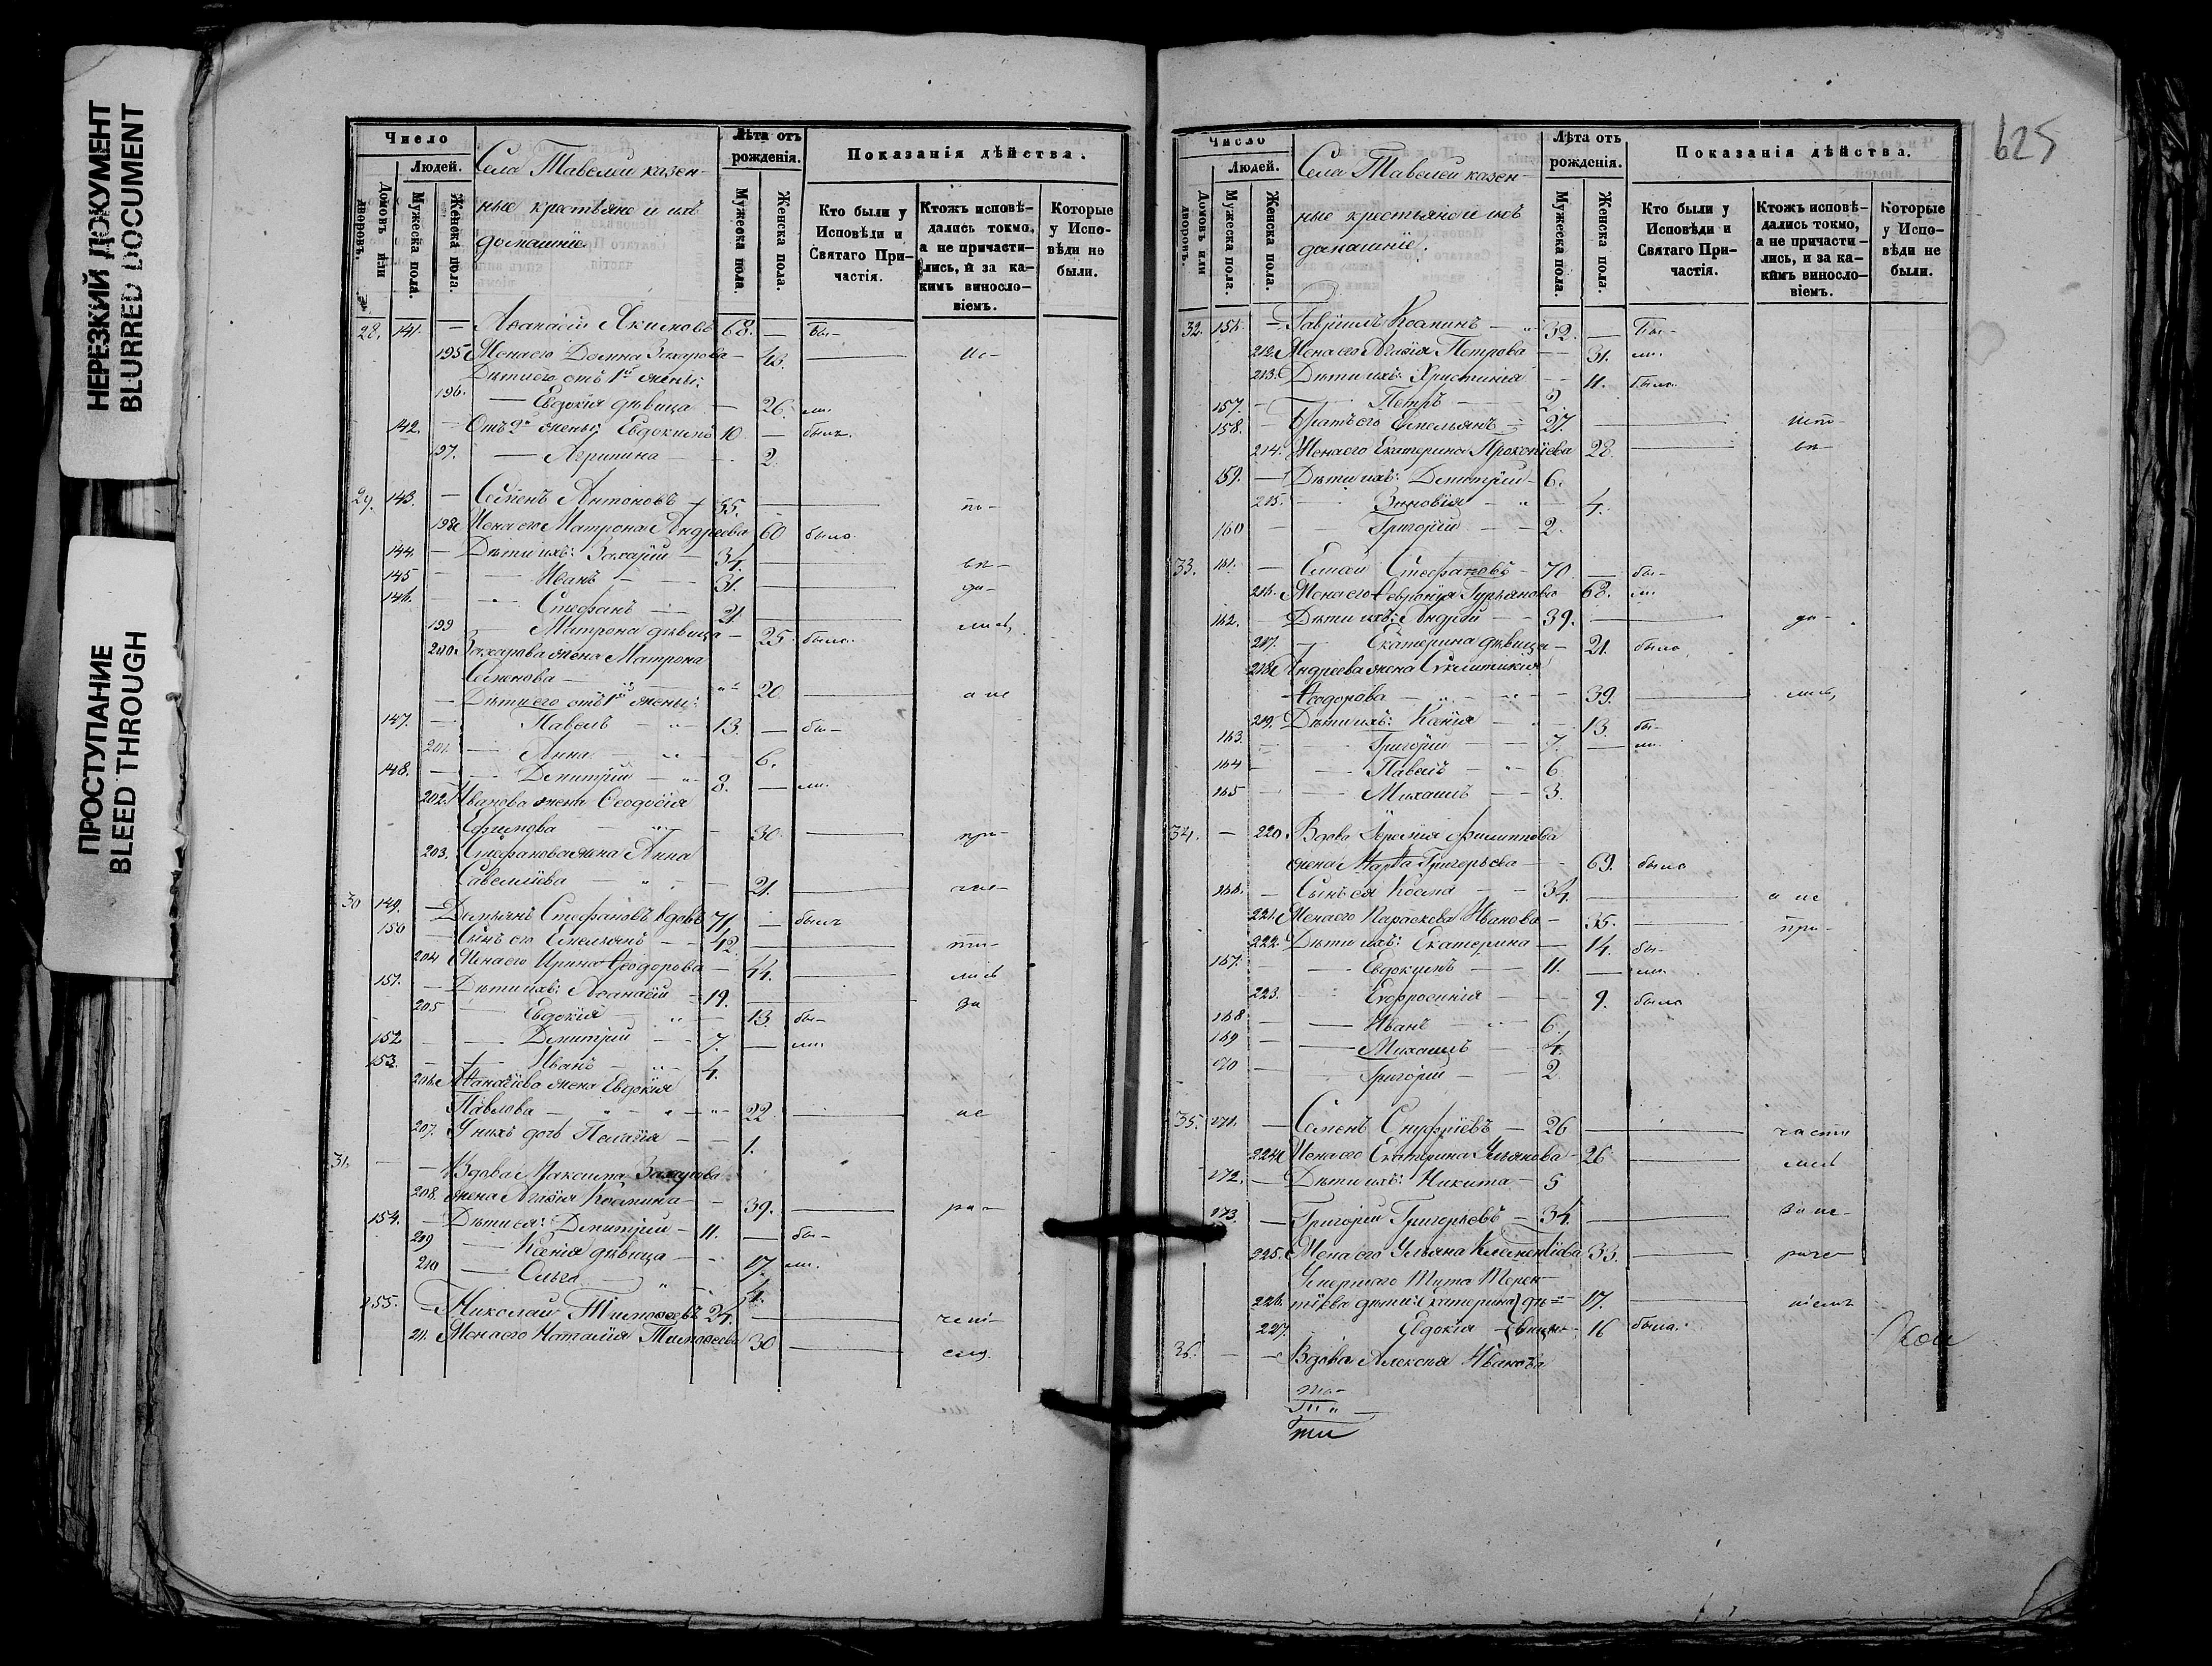 НЕРЕЗКИЙ ДОКУМЕНТ
BLURRED DOCUMENT
ПРОСТУПАНИЕ
BLEED THROUGH
Число
Людей.
Домовъ или дворовъ.
Мужеска пола.
Женска пола.
Села Тавелей казен-
ные крестьяне и ихъ
домашніе.
Лѣта отъ рожденія.
Мужеска пола.
Женска пола.
Показанія дѣйства.
Кто были у Исповѣди и Святаго При-частія.
Ктожъ исповѣ-дались токмо, а не причасти-лись, и за ка-кимъ виносло-віемъ.
Которые у Испо-вѣди не были.
28. 141. — Аѳанасій Якимовъ 68. — бы-
195 Жена его Домна Захарова — 43. — ис-
Дѣти его отъ 1й жены:
196. — Евдокія дѣвица — 26. ли.
142. — Отъ 2й жены: Евдокимъ 10 — былъ.
197. — Агрипина — 2.
29. 143. — Семенъ Антоновъ — 55. — по-
198 Жена его Матрона Андреева 60 была.
144. — Дѣти ихъ: Захарій — 34. — вѣ-
145 — Иванъ — 31. — да-
146. — Стефанъ — 21 — лись,
199 — Матрона дѣвица — 25 была.
200 Захарова жена Матрона
Семенова — 20 — а не
— Дѣти его отъ 1й жены:
147. — Павелъ — 13. — бы-
201. — Анна — 6.
148. — Димитрій — 8. — ли.
202. Иванова жена Ѳеодосія
Ефимова — 30 — при-
203. Стефанова жена Анна
Савелліева — 21. — час-
30 149. — Демьянъ Стефановъ вдовъ 71 — былъ
150 — Сынъ его Емельянъ — 42 — ти-
204 Жена его Ирина Ѳеодорова — 44. — лись
151. — Дѣти ихъ: Аѳанасій — 19. — за
205 — Евдокія — 13. бы-
152 — Димитрій — 7. — ли.
153. — Иванъ — 4.
206. Аѳанасіева жена Евдокія
Павлова — 22. — не
207. У нихъ дочь Пелагія — 1.
31. — Вдова Максима Захарова
208. жена Агаѳія Космина — 39. — ра-
154. — Дѣти ея: Димитрій — 11. — бы-
209 — Ксенія дѣвица — 17. ли.
210 — Ольга — 4.
155. — Николай Тимоѳеевъ 24. —
211. Жена его Наталія Тимоѳеева 30 —
625
Число
Людей.
Домовъ или дворовъ.
Мужеска пола.
Женска пола.
Села Тавелей казен-
ные крестьяне и ихъ
домашніе.
Лѣта отъ рожденія.
Мужеска пола.
Женска пола.
Показанія дѣйства.
Кто были у Исповѣди и Святаго При-частія.
Ктожъ исповѣ-дались токмо, а не причасти-лись, и за ка-кимъ виносло-віемъ.
Которые у Испо-вѣди не были.
32. 156. — Гавріилъ Косминъ — 32. — бы-
212. Жена его Агаѳія Петрова — 31. ли.
213. Дѣти ихъ: Христинія — 11. была.
157. — Петръ — 2
158. — Братъ его Емельянъ — 27. — испо-
214. Жена его Екатерина Прокопіева 28. — вѣ-
159. — Дѣти ихъ: Димитрій — 6.
215. — Зиновія — 4.
160 — Григорій — 2.
33. 161. — Стефановъ — 70 — бы-
216. Жена его Февронія Гурьянова 68. ли.
162. — Дѣти ихъ: Андрей — 39. — да-
217. — Екатерина дѣвица — 21. была
218 Андреева жена
Ѳеодорова — 39. — лись,
219. Дѣти ихъ: Ксенія — 13. бы-
163. — Григорій — 7. — ли.
164 — Павелъ — 6
165 — Михаилъ — 3.
34. — 220 Вдова Филиппова
жена Марѳа Григорьева — 69. была
166. — Сынъ ея Косма — 34. — а не
221. Жена его Параскева Иванова — 35. — при-
222. Дѣти ихъ: Екатерина — 14. бы-
167. — Евдокимъ — 11. — ли.
223. — Евфросинія — 9. была
168 — Иванъ — 6.
169 — Михаилъ — 4.
170 — Григорій — 2
35. 171. — Семенъ Онуфріевъ — 26 — части
224 Жена его Екатерина Ульянова — 26 — лись
172. — Дѣти ихъ: Никита — 5
173. — Григорій Григорьевъ — 34. — за не-
225. Жена его Ульяна Климентіева 33. — раче
Умершаго Тита Терен-
226. тіева дѣти: Екатерина } дѣ- 17. — ніемъ
227. Евдокія } вицы 16 была.
36. — Вдова Алексѣя Иванова